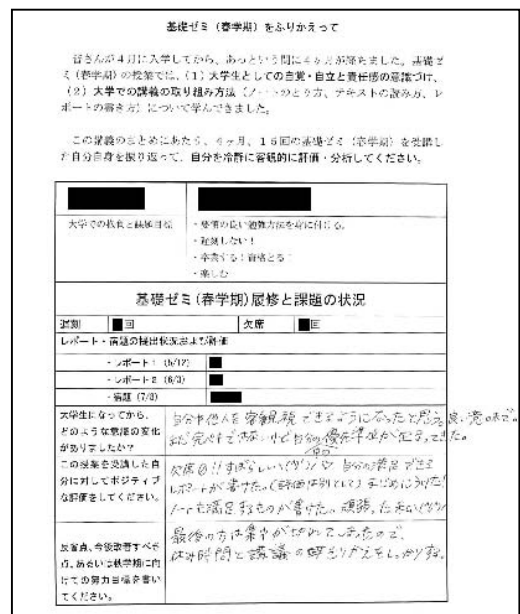 基礎ゼミ（春学期）をふりかえって
皆さんが4月に入学してから、あっという間に4ヶ月が経ちました。基礎ゼ
ミ（春学期）の授業では、（1）大学生としての自覚・自立と責任感の意識づけ、
（2）大学での講義の取り組み方法（ノートのとり方、テキストの読み方、レ
ポートの書き方）について学んできました。
この講義のまとめにあたり、4ヶ月、15回の基礎ゼミ（春学期）を受講し
た自分自身を振り返って、自分を冷静に客観的に評価・分析してください。
大学での抱負と課題目標
・要領の良い勉強方法を身に付ける。
・遅刻しない！
・卒業する！資格とる！
・楽しむ
基礎ゼミ（春学期）履修と課題の状況
遅刻 回 欠席 回
レポート・宿題の提出状況および評価
・レポート1 (5/12)
・レポート2 (6/3)
・宿題 (7/8)
大学生になってから、
どのような意識の変化
がありましたか？
自分や他人を客観視できるようになったと思う。良い意味で。
まだ完ぺきではないけど自分の優先順位が
この授業を受講した自
分に対してポジティブ
な評価をしてください。
欠席0!!すばらしい 自分の満足できる
レポートが書けた。(評価は別として)まじめにうけた!
ノートも満足するものが書けた。頑張った
反省点、今後改善すべき
点、あるいは秋学期に向
けての努力目標を書い
てください。
最後の方は集中が切れてしまったので、
休み時間と講義の切りかえをしっかりする。